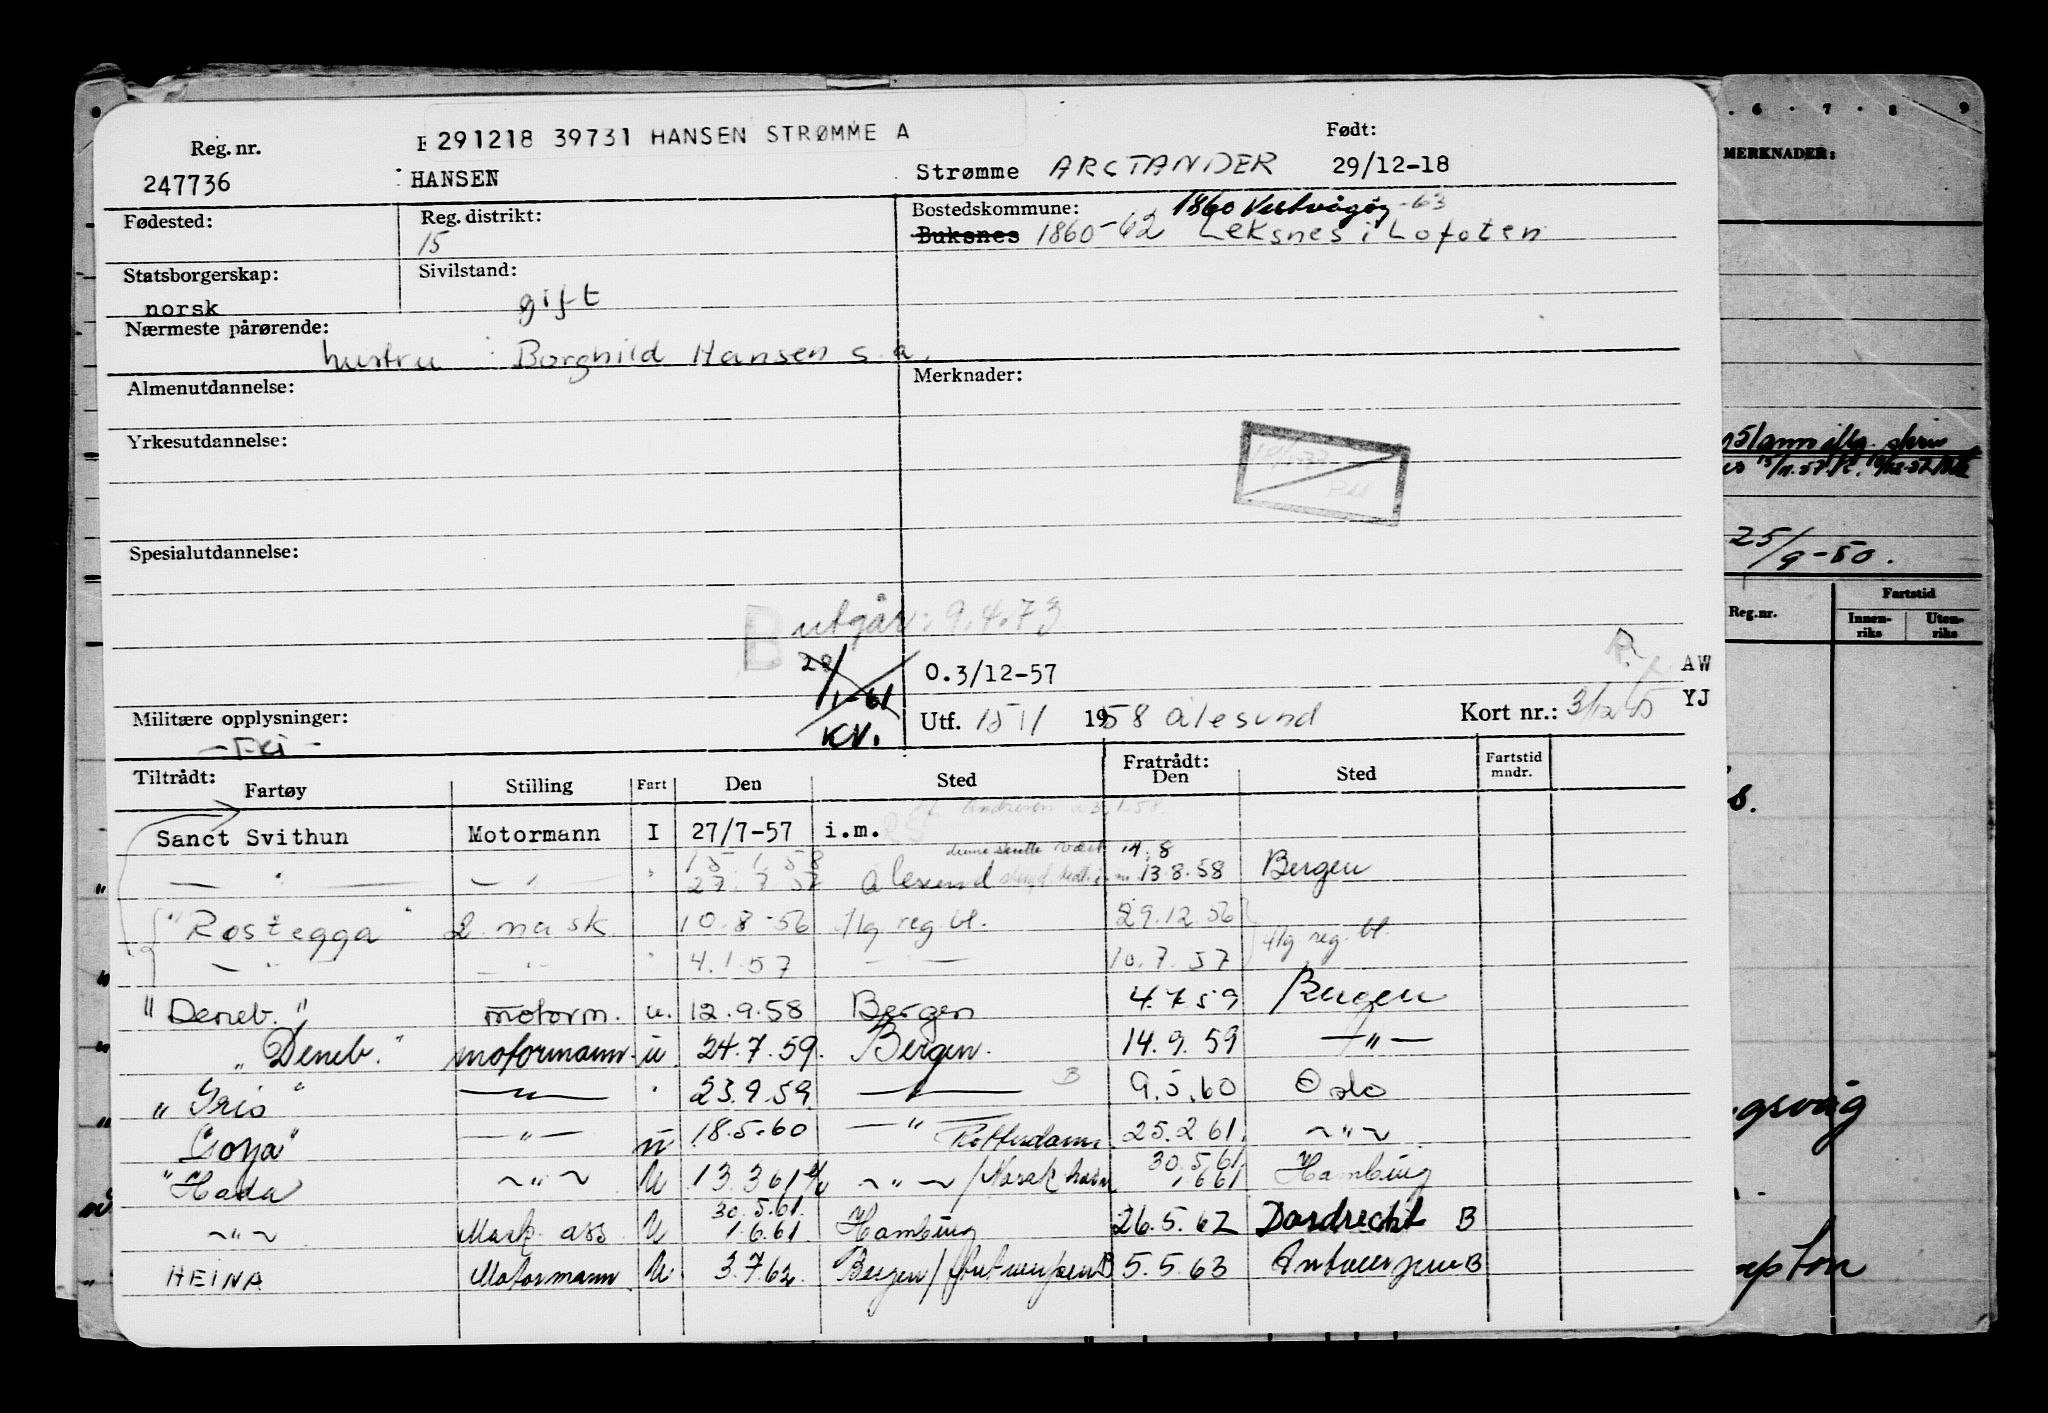 291218 39731 HANSEN STRØMME A
Reg. nr. Født:
247736 HANSEN Strømme ARCTANDER 29/12-18
Fødested: Reg. distrikt: 15 Bostedskommune: 1860 Vestvågøy -63
Buksnes 1860-62 Leksnes i Lofoten
Statsborgerskap: norsk Sivilstand: gift
Nærmeste pårørende:
hustru Borghild Hansen s.a.
Almenutdannelse: Merknader:
Yrkesutdannelse:
Spesialutdannelse:
B utgår: 9.4.73
O.3/12-57 AW
1-61
KV.
Militære opplysninger: Utf. 15/1 1958 Ålesund Kort nr.: YJ
- Fri -
Tiltrådt: Fratrådt:
Fartøy Stilling Fart Den Sted Den Sted Fartstid mndr.
Sanct Svithun Motormann I 27/7-57 i.m.
15.1.58 14.8
— " — — " — " 27.7.57 Ålesund 13.8.58 Bergen
"Rostegga" 2. mask. 10.8-56 iflg reg. bl. 29.12.56 iflg reg. bl.
— " — — " — " 4.1.57 — — 10.7.57
"Deneb." motorm. u. 12.9.58 Bergen 4.7.59 Bergen
"Deneb." motormann. u. 24.7.59. Bergen. 14.9.59 — " —
"Iris" — " — " 23.9.59. — " — B 9.5.60 Oslo
Goya" — " — u 18.5.60 — " — Rotterdam. 25.2 61. ~ " ~
"Hada ~ " ~ U 13.3 61 ~ " ~ / 30.5.61. 1.6 61 Hamburg
~ " ~ Mask. ass U 30.5.61. 1.6.61. Hamburg 26.5.62 Dordrecht B
HEINA Motormann U 3.7.62. Bergen / Antwerpen B 5.5.63 Antwerpen B
6 7 8 9
MERKNADER:
25/9-50.
Reg.nr. Fartstid
Innenriks Utenriks